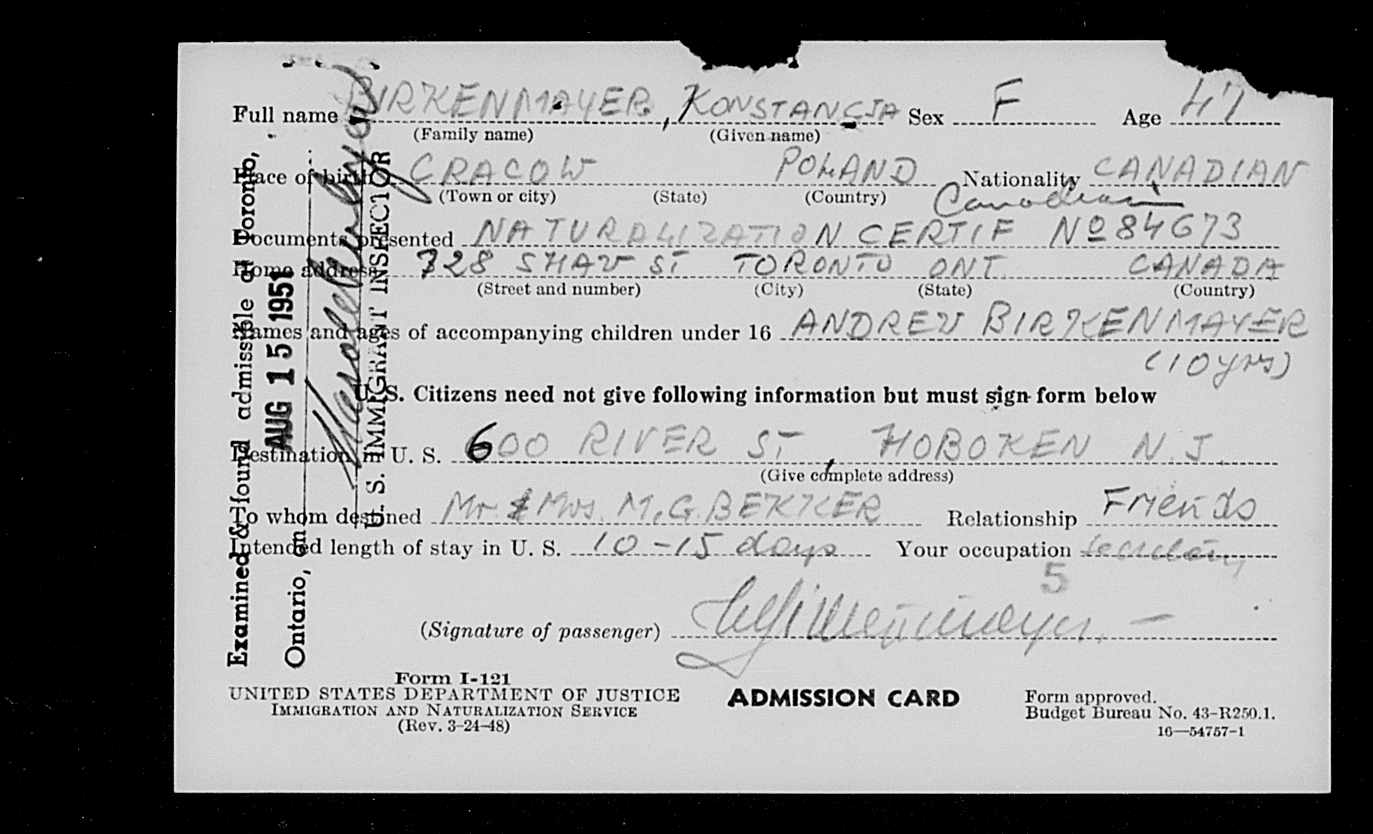 Full name BIRKENMAYER, KONSTANCJA Sex F Age 47
(Family name) (Given name)
Place of birth CRACOW POLAND Nationality CANADIAN
(Town or city) (State) (Country) Canadian
Documents presented NATURALIZATION CERTIF No 84673
Home address 328 SHAW ST TORONTO ONT. CANADA
(Street and number) (City) (State) (Country)
Names and ages of accompanying children under 16 ANDREW BIRKENMAYER
(10 yrs)
U. S. Citizens need not give following information but must sign form below
Destination in U. S. 600 RIVER ST, HOBOKEN N.J.
(Give complete address)
To whom destined Mr & Mrs. M.G. BEKKER Relationship Friends
Intended length of stay in U. S. 10-15 days Your occupation secretary
5
(Signature of passenger)
Form I-121
UNITED STATES DEPARTMENT OF JUSTICE
IMMIGRATION AND NATURALIZATION SERVICE
(Rev. 3-24-48)
ADMISSION CARD
Form approved.
Budget Bureau No. 43-R250.1.
16—54757-1
Examined & found admissible at Toronto,
Ontario, on AUG 15 1951
U. S. IMMIGRANT INSPECTOR